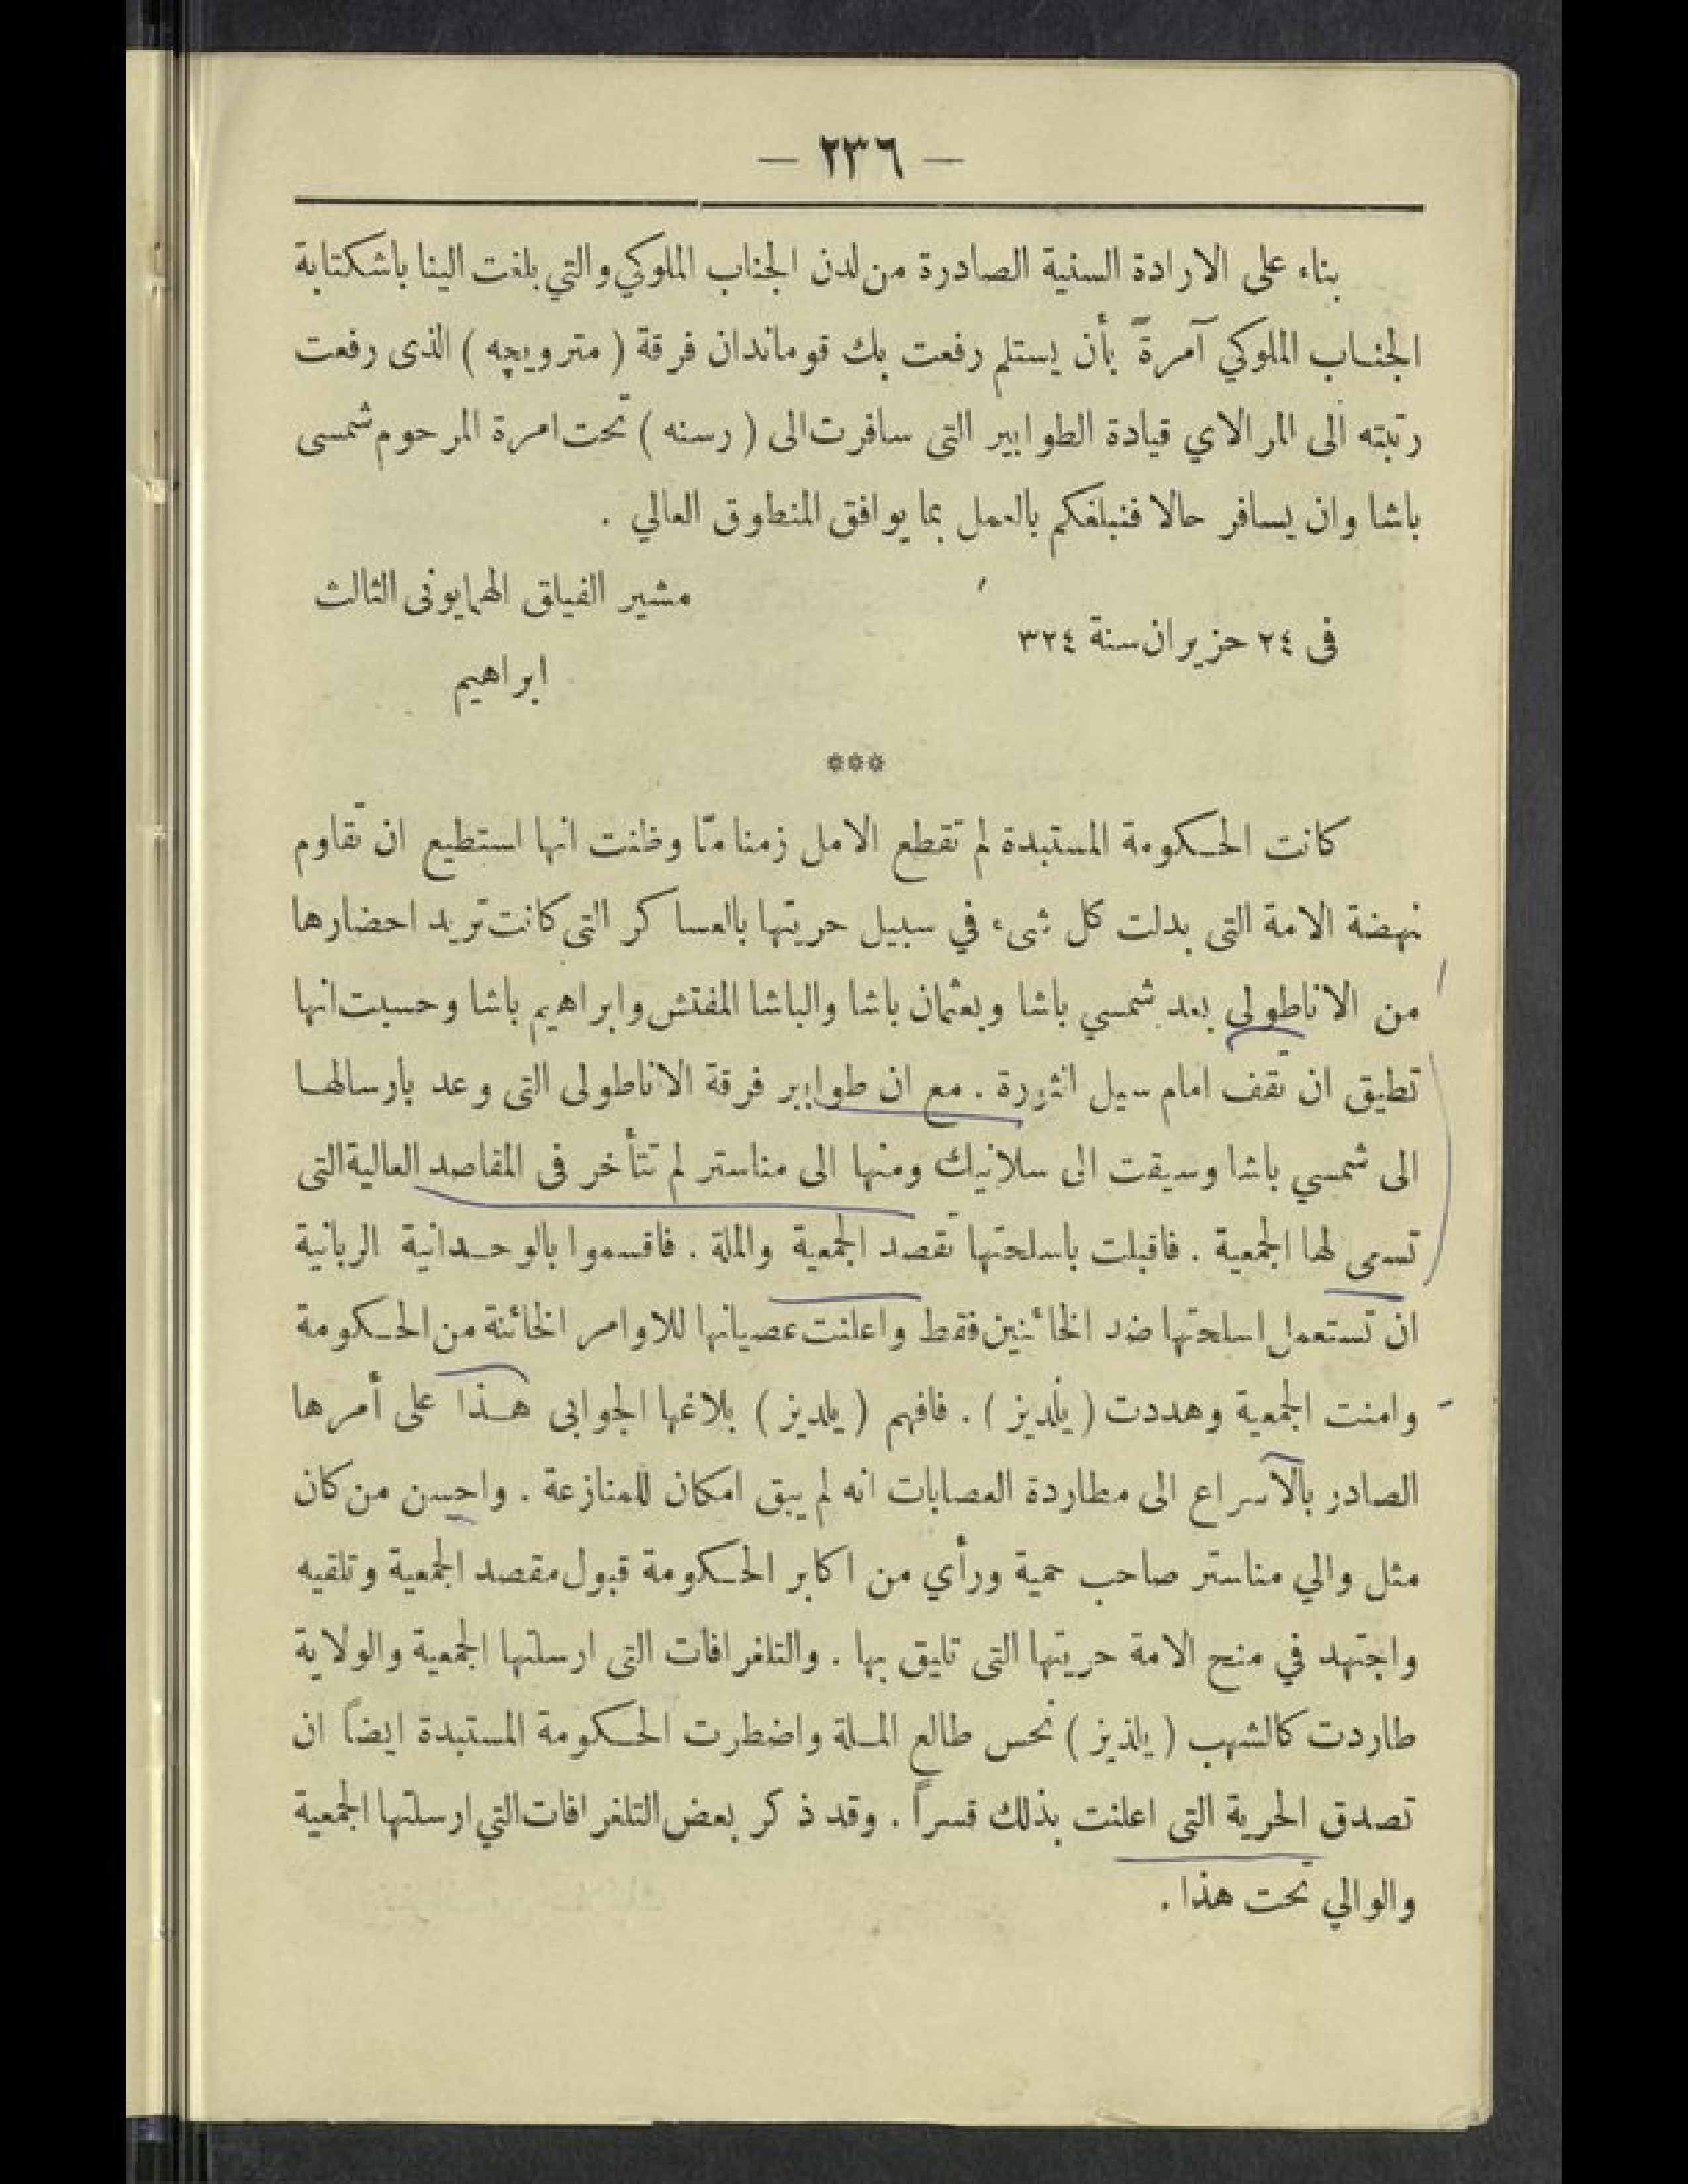 — ٢٣٦ —
بناء على الارادة السنية الصادرة من لدن الجناب الملوكي والتي بلغت الينا باشكتابة
الجناب الملوكي آمرةً بأن يستلم رفعت بك قوماندان فرقة ( متروويچه ) الذى رفعت
رتبته الى المرالاي قيادة الطوابير التى سافرت الى ( رسنه ) تحت امرة المرحوم شمسى
باشا وان يسافر حالا فنبلغكم بالعمل بما يوافق المنطوق العالي .
مشير الفيلق الهمايونى الثالث
فى ٢٤ حزيران سنة ٣٢٤
ابراهيم
***
كانت الحكومة المستبدة لم تقطع الامل زمنا مّا وظنت انها استطيع ان تقاوم
نهضة الامة التى بدلت كل شىء في سبيل حريتها بالعساكر التى كانت تريد احضارها
من الاناطولي بعد شمسي باشا وبعثمان باشا والباشا المفتش وابراهيم باشا وحسبت انها
تطيق ان تقف امام سيل الثورة . مع ان طوابير فرقة الاناطولى التى وعد بارسالها
الى شمسي باشا وسيقت الى سلانيك ومنها الى مناستر لم تتأخر فى المقاصد العالية التى
تسعى لها الجمعية . فاقبلت باسلحتها تقصد الجمعية والملة . فاقسموا بالوحدانية الربانية
ان تستعمل اسلحتها ضد الخائنين فقط واعلنت عصيانها للاوامر الخائنة من الحكومة
وامنت الجمعية وهددت ( يلديز ) . فافهم ( يلديز ) بلاغها الجوابى هذا على أمرها
الصادر بالاسراع الى مطاردة العصابات انه لم يبق امكان للمنازعة . واحسن من كان
مثل والي مناستر صاحب حمية ورأي من اكابر الحكومة قبول مقصد الجمعية وتلقيه
واجتهد في منح الامة حريتها التى تليق بها . والتلغرافات التى ارسلتها الجمعية والولاية
طاردت كالشهب ( يلديز ) نحس طالع الملة واضطرت الحكومة المستبدة ايضاً ان
تصدق الحرية التى اعلنت بذلك قسراً . وقد ذكر بعض التلغرافات التي ارسلتها الجمعية
والوالي تحت هذا .